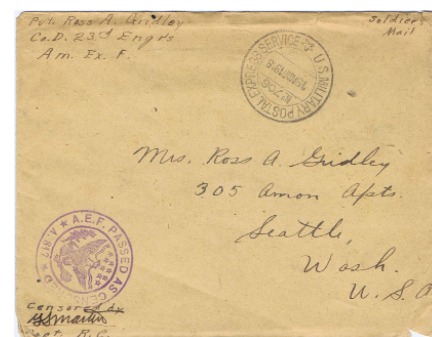 Pvt. Ross A. Gridley
Co. D. 23d Engrs
Am. Ex. F.
Soldier's
Mail
U.S. MILITARY POSTAL EXPRESS SERVICE
No 706
Mrs. Ross A. Gridley
305 Amon Apts.
Seattle,
Wash.
U.S.A
A.E.F. PASSED AS CENSORED
A.817
Censored by
Martin